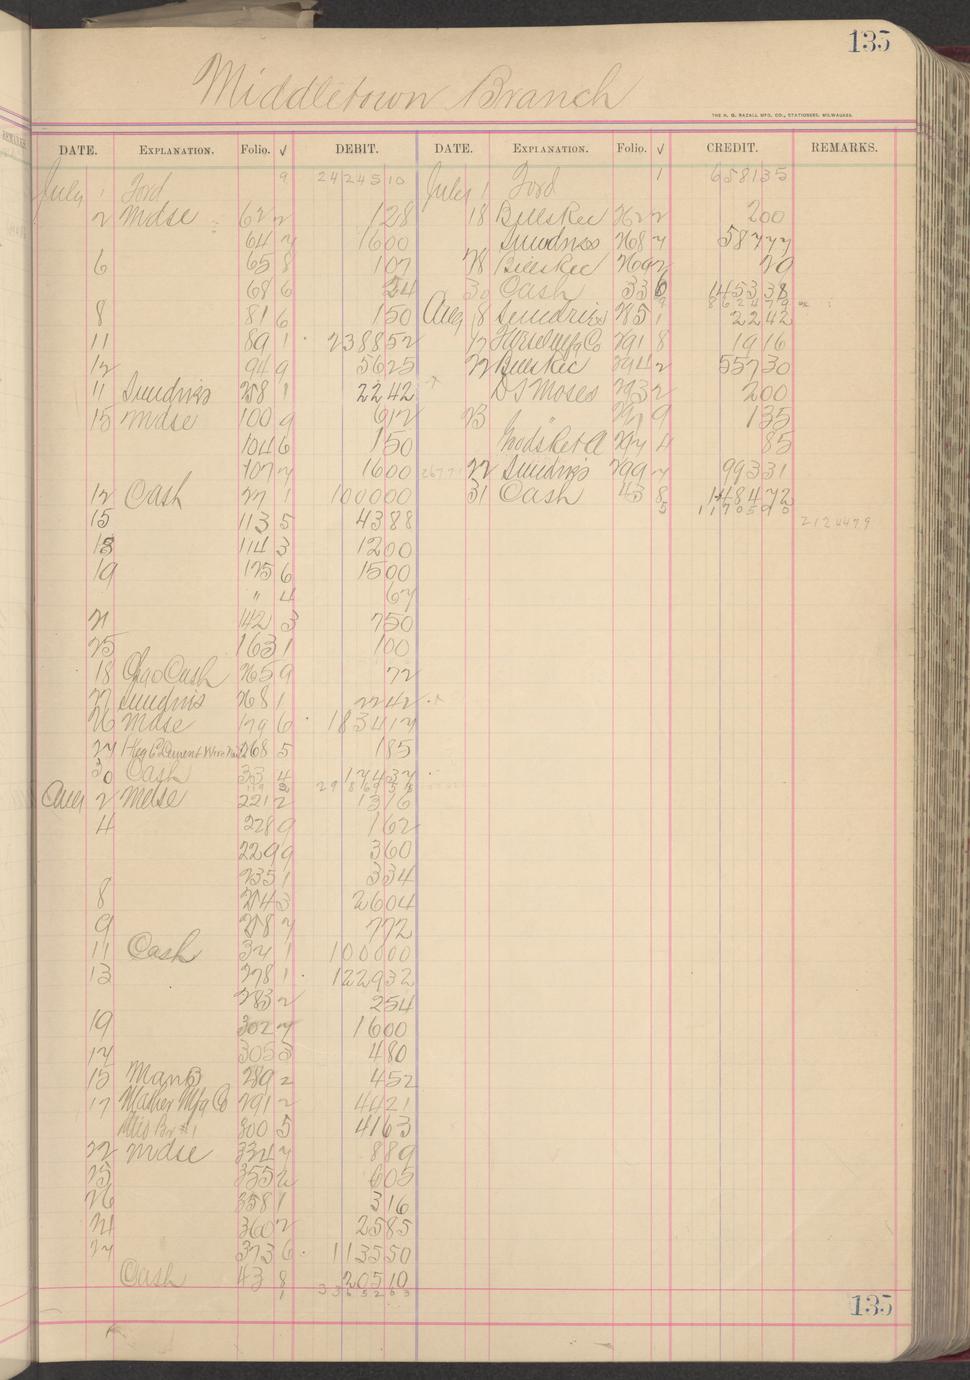 135
Middletown Branch
THE H. G. RAZALL MFG. CO., STATIONERS, MILWAUKEE.
DATE. EXPLANATION. FOLIO. √ DEBIT. DATE. EXPLANATION. FOLIO. √ CREDIT. REMARKS.
July 1 Ford 9 2424510 July 1 Ford 1 658135
2 Mdse 62 2 128 18 Bills Rec 262 2 200
64 7 1600 Sundries 268 7 58777
6 65 8 107 28 Bills Rec 269 2 20
68 6 54 30 Cash 33 6 145338
8 81 6 150 Aug 8 Sundries 285 1 2242
11 89 1 238852 291 8 1916
12 94 9 5625 22 Bills Rec 294 2 55730
11 Sundries 258 1 2242 D S Moses 293 2 200
15 Mdse 100 9 612 23 " 9 135
104 6 150 4 85
107 7 1600 22 Sundries 299 7 99331
12 Cash 27 1 100000 31 Cash 43 8 148472
5 1170590
15 113 5 4388 2124479
18 114 3 1200
19 125 6 1500
" 4 67
21 142 3 750
25 163 1 100
18 Chgo Cash 265 9 72
27 Sundries 268 1 2242
26 Mdse 179 6 183417
27 268 5 185
30 Cash 33 4 17437
Aug 2 Mdse 221 2 1316
4 228 9 162
229 9 360
235 1 334
8 254 3 2604
9 258 7 772
11 Cash 37 1 100000
13 278 1 122932
283 2 254
19 302 7 1600
14 305 5 480
15 Man B 289 2 452
17 Mather Mfg Co 291 2 4421
300 5 4163
22 Mdse 334 7 889
25 355 2 605
26 358 1 316
21 360 2 2585
27 373 6 113550
Cash 43 8 20510
1 3365263
135